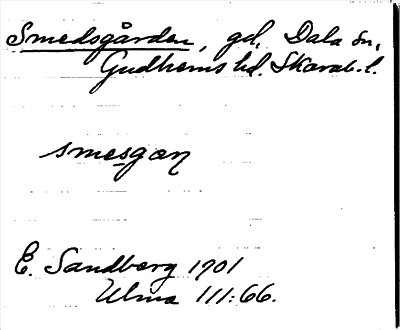 Smedsgården, gd, Dala sn,
Gudhems hd. Skarab. l.
smesgan
E. Sandberg 1901
Ulma 111:66.